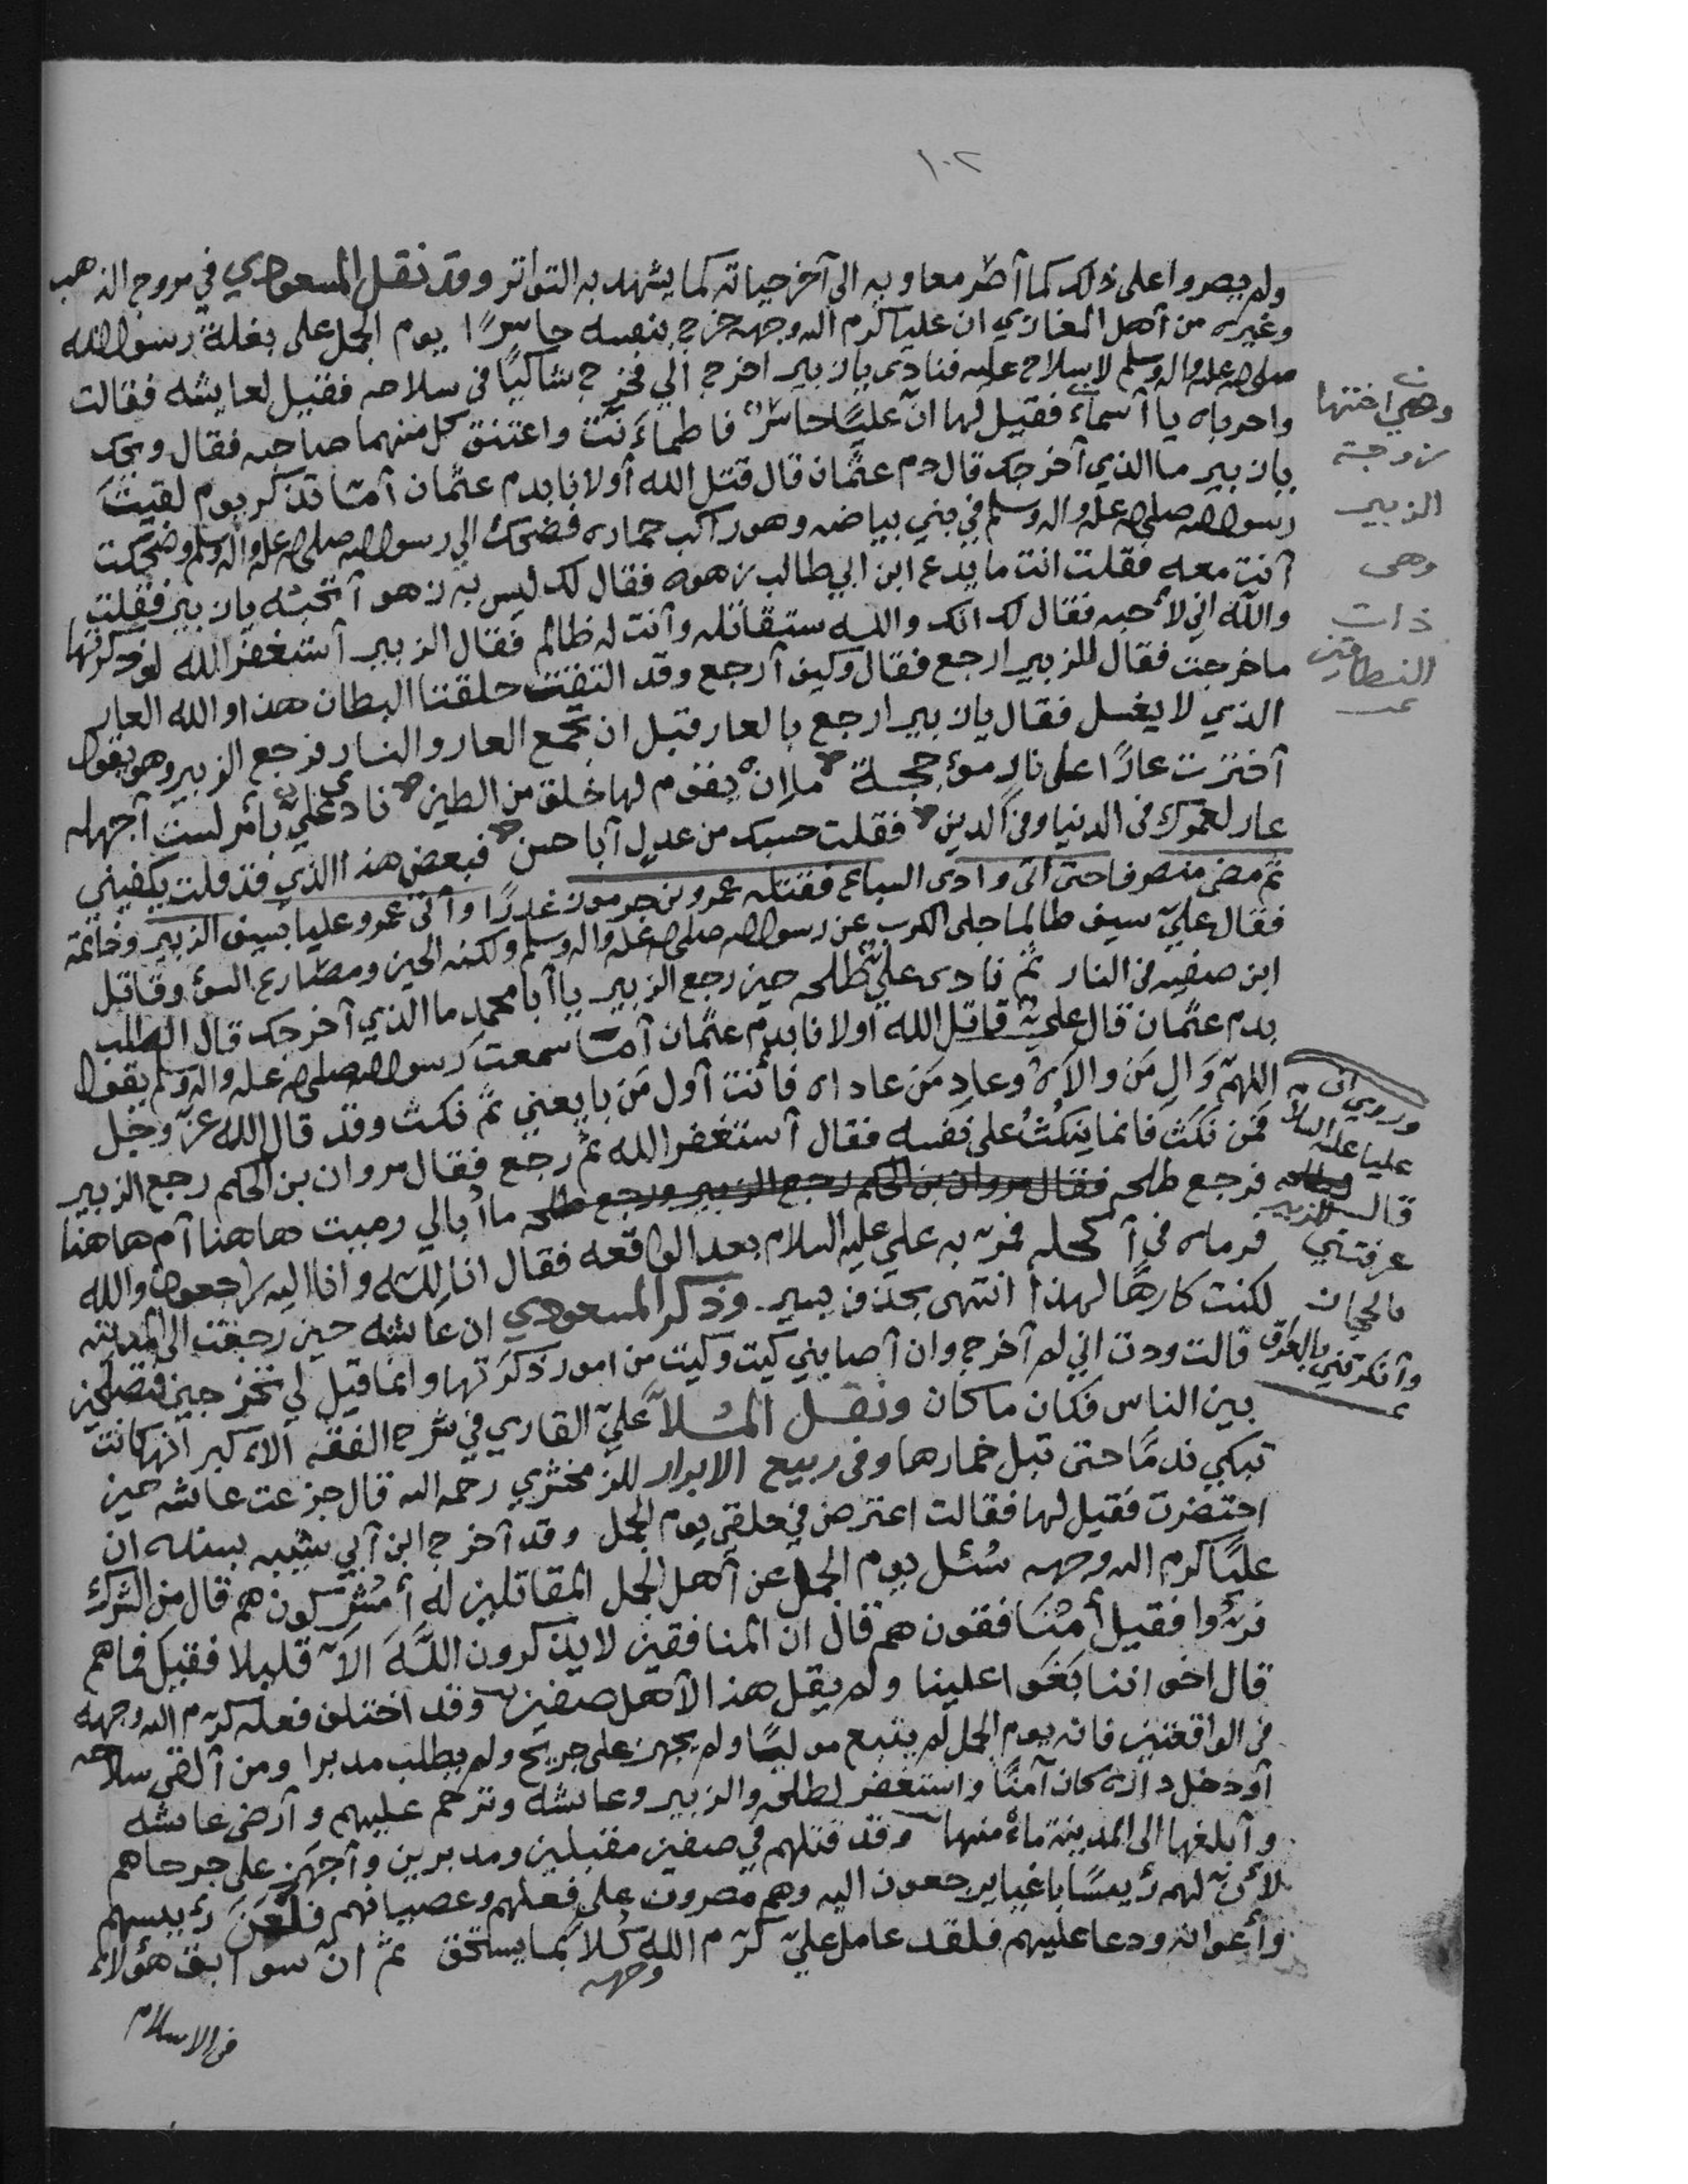 ١٠٢
ولم يصروا على ذلك كما أصر معاويه الى آخر حياته كما يشهد به التواتر وقد نقل المسعودي في مروج الذهب
وغيره من أهل المغازي ان عليا كرم الله وجهه خرج بنفسه حاسرًا يوم الجمل على بغلة رسول الله
صلى الله عليه واله وسلم لا سلاح عليه فنادى يا زبير اخرج الي فخرج شاكيًا في سلاحه فقيل لعايشه فقالت
واحرباه يا أسماء فقيل لها ان عليًا حاسر فاطمأنت واعتنق كل منهما صاحبه فقال ويحك
يا زبير ما الذي أخرجك قال دم عثمان قال قتل الله أولانا بدم عثمان أمّا تذكر يوم لقيت
رسول الله صلى الله عليه واله وسلم في بني بياضه وهو راكب حماره فضحك الي رسول الله صلى الله عليه واله وسلم وضحكت
أنت معه فقلت انت ما يدع ابن ابي طالب زهوه فقال لك ليس به زهو أتحبه يا زبير فقلت
والله اني لأحبه فقال لك انك والله ستقاتله وأنت له ظالم فقال الزبير أستغفر الله لو ذكرتها
ما خرجت فقال للزبير ارجع فقال وكيف أرجع وقد التفت حلقتا البطان هذا والله العار
الذي لا يغسل فقال يا زبير ارجع بالعار قبل ان تجمع العار والنار فرجع الزبير وهو يقول
أخترت عارًا على نار مؤججة ما إن يقوم لها خلق من الطين نادى علي بأمر لست أجهله
عار لعمرك في الدنيا وفي الدين فقلت حسبك من عدل أبا حسن فبعض هذا الذي قد قلت يكفيني
ثم مضى منصرفا حتى اتى وادى السباع فقتله عمرو بن جرموز غدرًا وأتى عمرو عليا بسيف الزبير وخاتمه
فقال علي سيف طالما جلى الكرب عن رسول الله صلى الله عليه واله وسلم ولكنه الحين ومصارع السوء وقاتل
ابن صفيه في النار ثم نادى علي طلحه حين رجع الزبير يا أبا محمد ما الذي أخرجك قال الطلب
بدم عثمان قال علي قاتل الله أولانا بدم عثمان أمّا سمعت رسول الله صلى الله عليه واله وسلم يقول
اللهم وَالِ مَن والاه وعادِ مَن عاداه فأنت أول مَن بايعني ثم نكث وقد قال الله عز وجل
فمن نكث فانما ينكث على نفسه فقال أستغفر الله ثم رجع فقال مروان بن الحكم رجع الزبير
فرجع طلحه فقال مروان بن الحكم رجع الزبير ورجع طلحه ما أبالي رميت هاهنا أم هاهنا
فرماه في أكحله فمر به علي عليه السلام بعد الواقعه فقال انا لله وانا اليه راجعون والله
لكنت كارهًا لهذا انتهى بحذف يسير وذكر المسعودي ان عايشه حين رجعت الى المدينه
قالت وددت اني لم أخرج وان أصابني كيت وكيت من امور ذكرتها وانما قيل لي تخرجين فتصلحين
بين الناس فكان ما كان ونقل المُلاّ عليّ القاري في شرح الفقه الأكبر انها كانت
تبكي ندمًا حتى تبل خمارها وفي ربيع الابرار للزمخشري رحمه الله قال جزعت عائشه حين
احتضرت فقيل لها فقالت اعترض في حلقي يوم الجمل وقد أخرج ابن أبي شيبه بسنده ان
عليًا كرم الله وجهه سُئل يوم الجمل عن أهل الجمل المقاتلين له أمُشركون هم قال من الشرك
فرّوا فقيل أمُنافقون هم قال ان المنافقين لا يذكرون اللّهَ الاّ قليلا فقيل فما هم
قال اخواننا بَغَوا علينا ولم يقل هذا لأهل صفين وقد اختلف فعله كرّم الله وجهه
في الواقعتين فانه يوم الجمل لم يتبع موليًا ولم يجهز على جريح ولم يطلب مدبرا ومن ألقى سلاحه
أو دخل داره كان آمنًا واستغفر لطلحه والزبير وعائشه وترحم عليهم وأرضى عائشه
وأبلغها الى المدينة مأمنها وقد قتلهم في صفين مقبلين ومدبرين وأجهَز على جرحاهم
لأن لهم رئيسًا باغيا يرجعون اليه وهم مصرون على فعلهم وعصيانهم فلَعَنَ رئيسهم
وأعوانه ودعا عليهم فلقد عامل عليّ كرّم الله وجهه كُلا بما يستحق ثم ان سوابق هؤلاء
في الاسلام
وهي اختها
زوجة
الزبير
وهى
ذات
النطاقين
وروي ان
عليا عليه السلام
قال للزبير
عرفتني
بالحجاز
وأنكرتني بالعراق